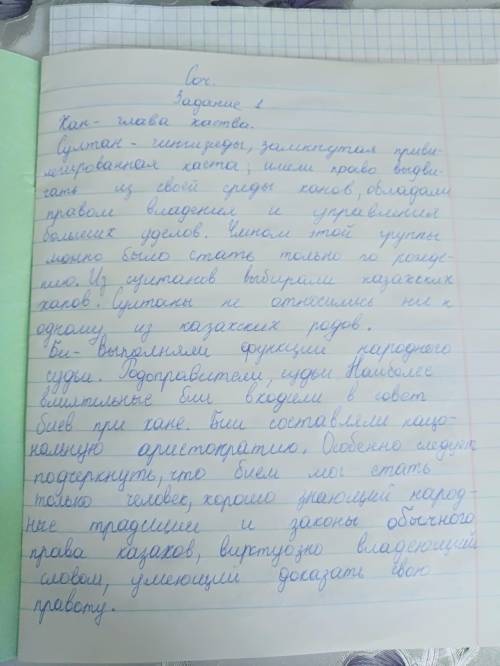 Соч.
Задание 1
Хан - глава ханства.
Султан - чингизиды, замкнутая приви-
легированная каста, имели право выдви-
гать из своей среды ханов, обладали
правом владения и управления
больших уделов. Членом этой группы
можно было стать только по рожде-
нию. Из султанов выбирали казахских
ханов. Султаны не относились ни к
одному из казахских родов.
Би - Выполняли функции народного
судьи. Родоправители, судьи Наиболее
влиятельные бии входили в совет
биев при хане. Бии составляли нацо-
нальную аристократию. Особенно следует
подчеркнуть, что бием мог стать
только человек, хорошо знающий народ-
ные традиции и законы обычного
права казахов, виртуозно владеющий
словом, умеющий доказать свою
правоту.